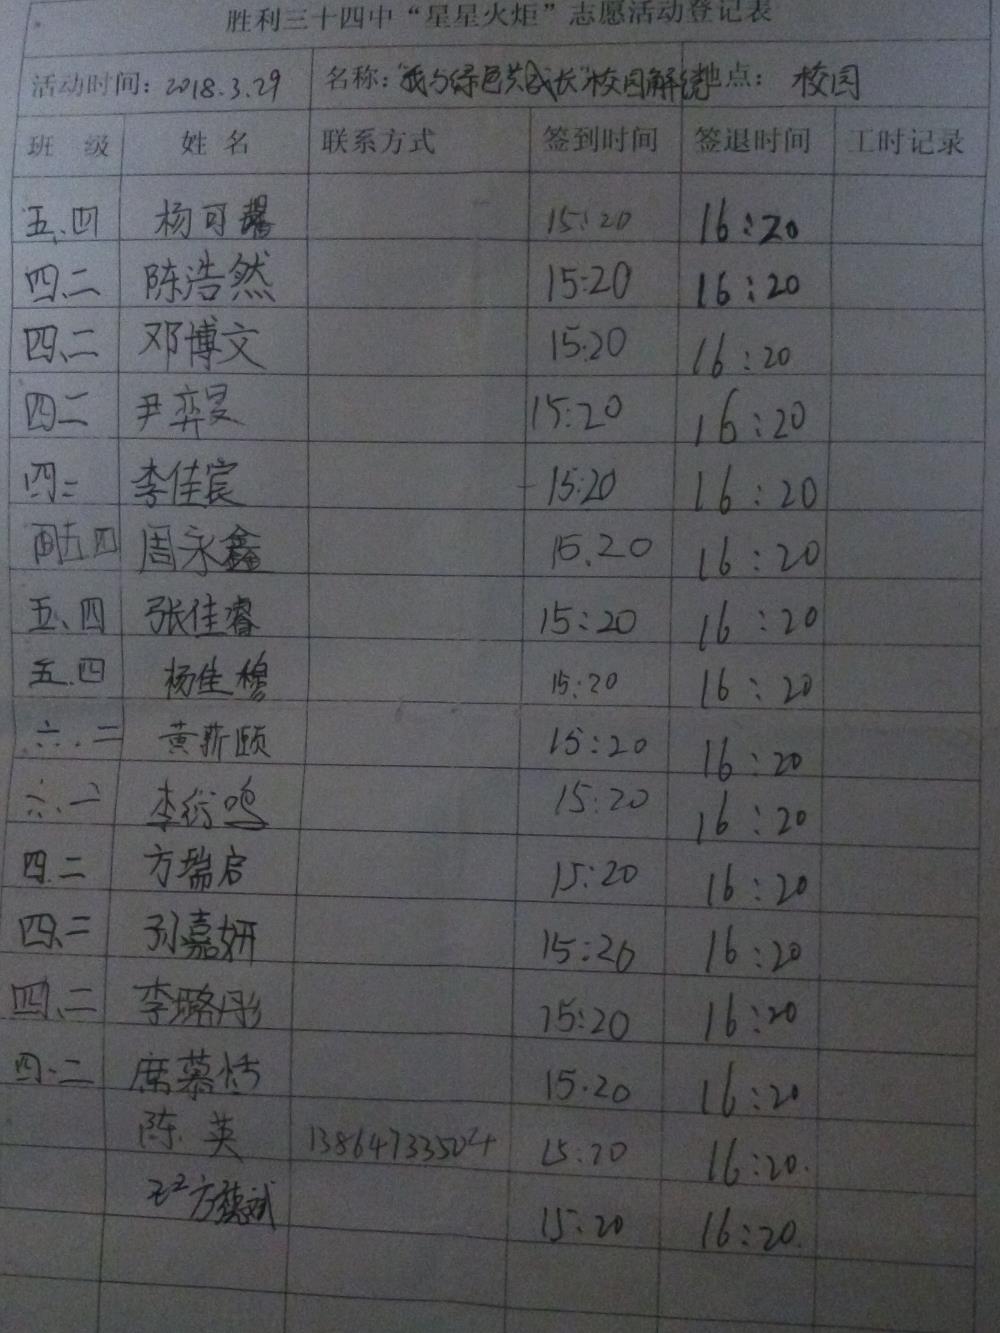 胜利三十四中“星星火炬”志愿活动登记表
活动时间：2018.3.29 名称：“我与绿色共成长”校园解说 地点： 校园
班 级 姓 名 联系方式 签到时间 签退时间 工时记录
五、四 杨可馨 15:20 16:20
四、二 陈浩然 15:20 16:20
四、二 邓博文 15:20 16:20
四二 尹弈旻 15:20 16:20
四二 李佳宸 15:20 16:20
五四 周永鑫 15.20 16:20
五、四 张佳睿 15:20 16:20
五.四 杨佳穆 15:20 16:20
六.二 黄新颐 15:20 16:20
六.一 李衍鸣 15:20 16:20
四.二 方瑞启 15:20 16:20
四、二 孙嘉妍 15:20 16:20
四、二 李璐彤 15:20 16:20
四.二 席慕恬 15.20 16:20
陈 英 13864733504 15:20 16:20.
方懿斌 15:20 16:20.